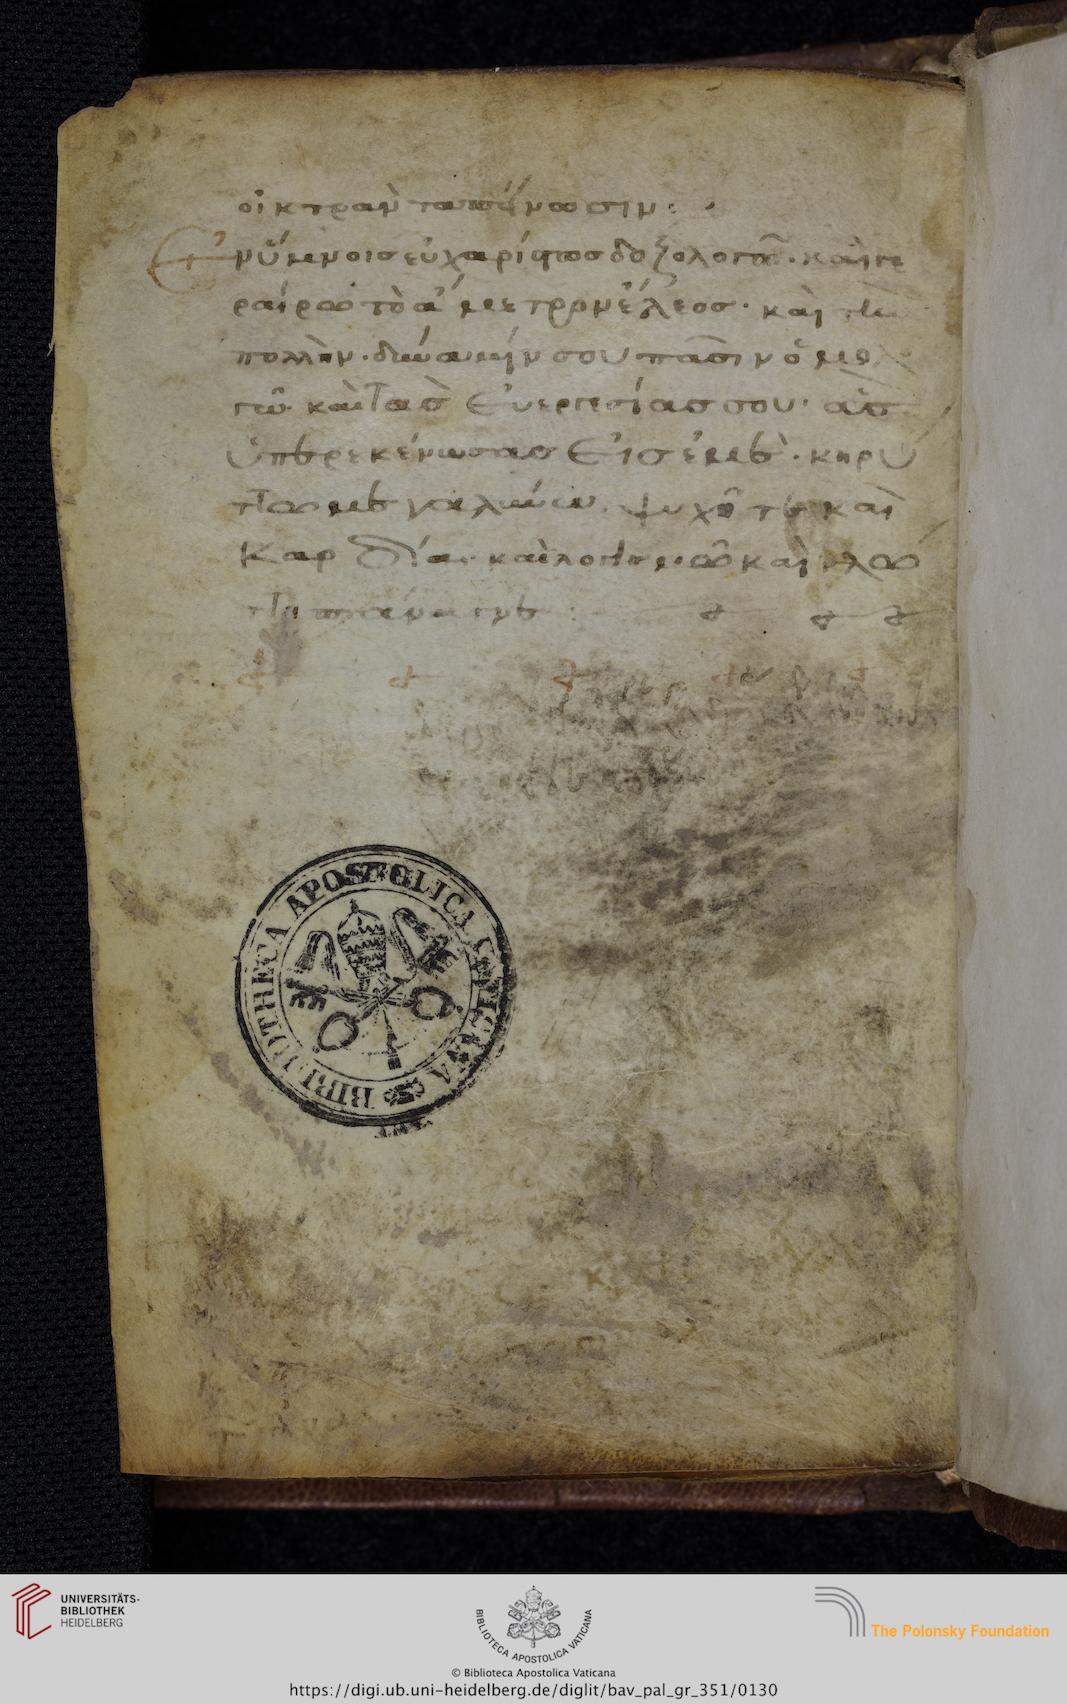 οἰκτρὰν ταπείνωσιν:
Ἐν ὕμνοις εὐχαρίστοσ δοξολογῶ· καὶ γε
ραίρω τὸ ἄμετρον ἔλεοσ· καὶ τὴν
πολλὴν· δύναμίν σου πᾶσιν ὁμολο
γῶ· καὶ τὰσ εὐεργεσίασ σου· ἃσ
ὑπερεκένωσασ εἰσ ἐμὲ· κηρύ
ττω μεγαλύνω· ψυχῆ τὲ καὶ
καρδία· καὶ λογισμῶ καὶ γλώ
ττη πανάγνε:
BIBLIOTHECA APOSTOLICA VATICANA
UNIVERSITÄTS-
BIBLIOTHEK
HEIDELBERG
BIBLIOTECA APOSTOLICA VATICANA
The Polonsky Foundation
© Biblioteca Apostolica Vaticana
https://digi.ub.uni-heidelberg.de/diglit/bav_pal_gr_351/0130